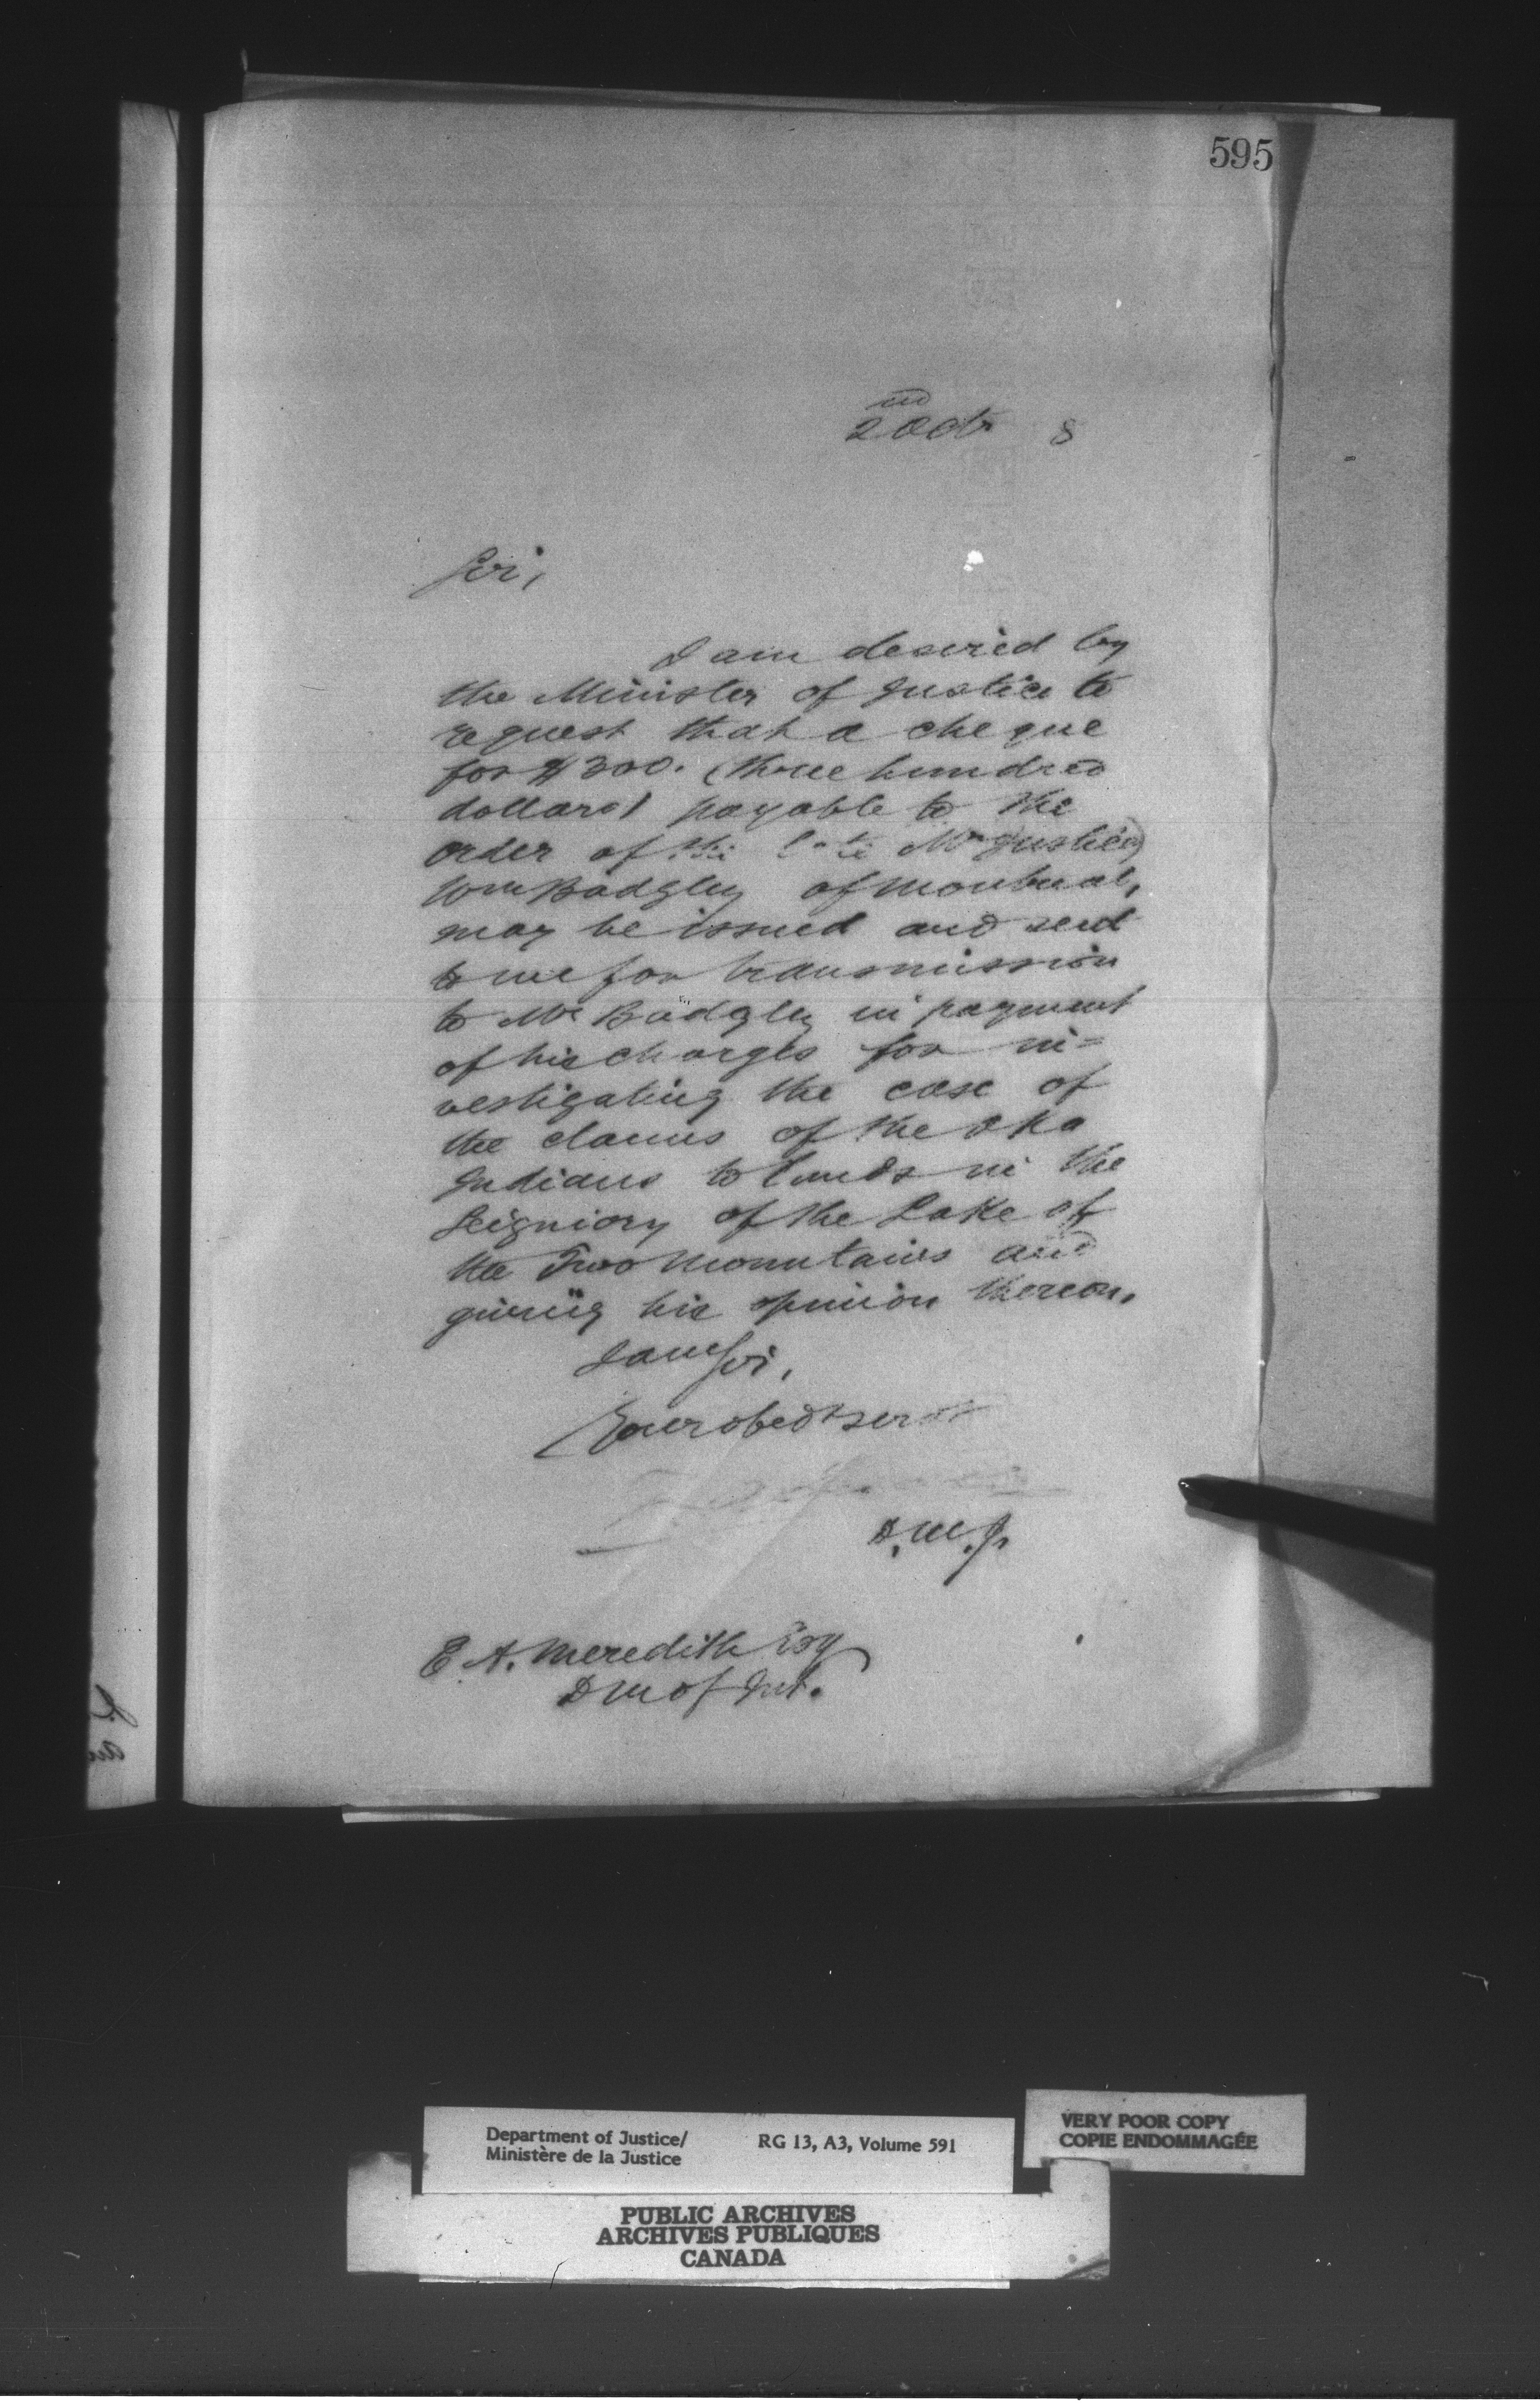 595
2nd Octr 8
Sir,
I am desired by
the Minister of Justice to
request that a cheque
for $300. (three hundred
dollars) payable to the
order of the late Mr Justice)
Wm Badgley of Montreal,
may be issued and sent
to me for transmission
to Mr Badgley in payment
of his charges for in=
vestigating the case of
the claims of the Oka
Indians to lands in the
Seigniory of the Lake of
the Two Mountains and
giving his opinion thereon.
I am Sir,
Your obedt servt
D.M.J.
E. A. Meredith Esq
D M of Int.
Department of Justice/
Ministère de la Justice
RG 13, A3, Volume 591
VERY POOR COPY
COPIE ENDOMMAGÉE
PUBLIC ARCHIVES
ARCHIVES PUBLIQUES
CANADA